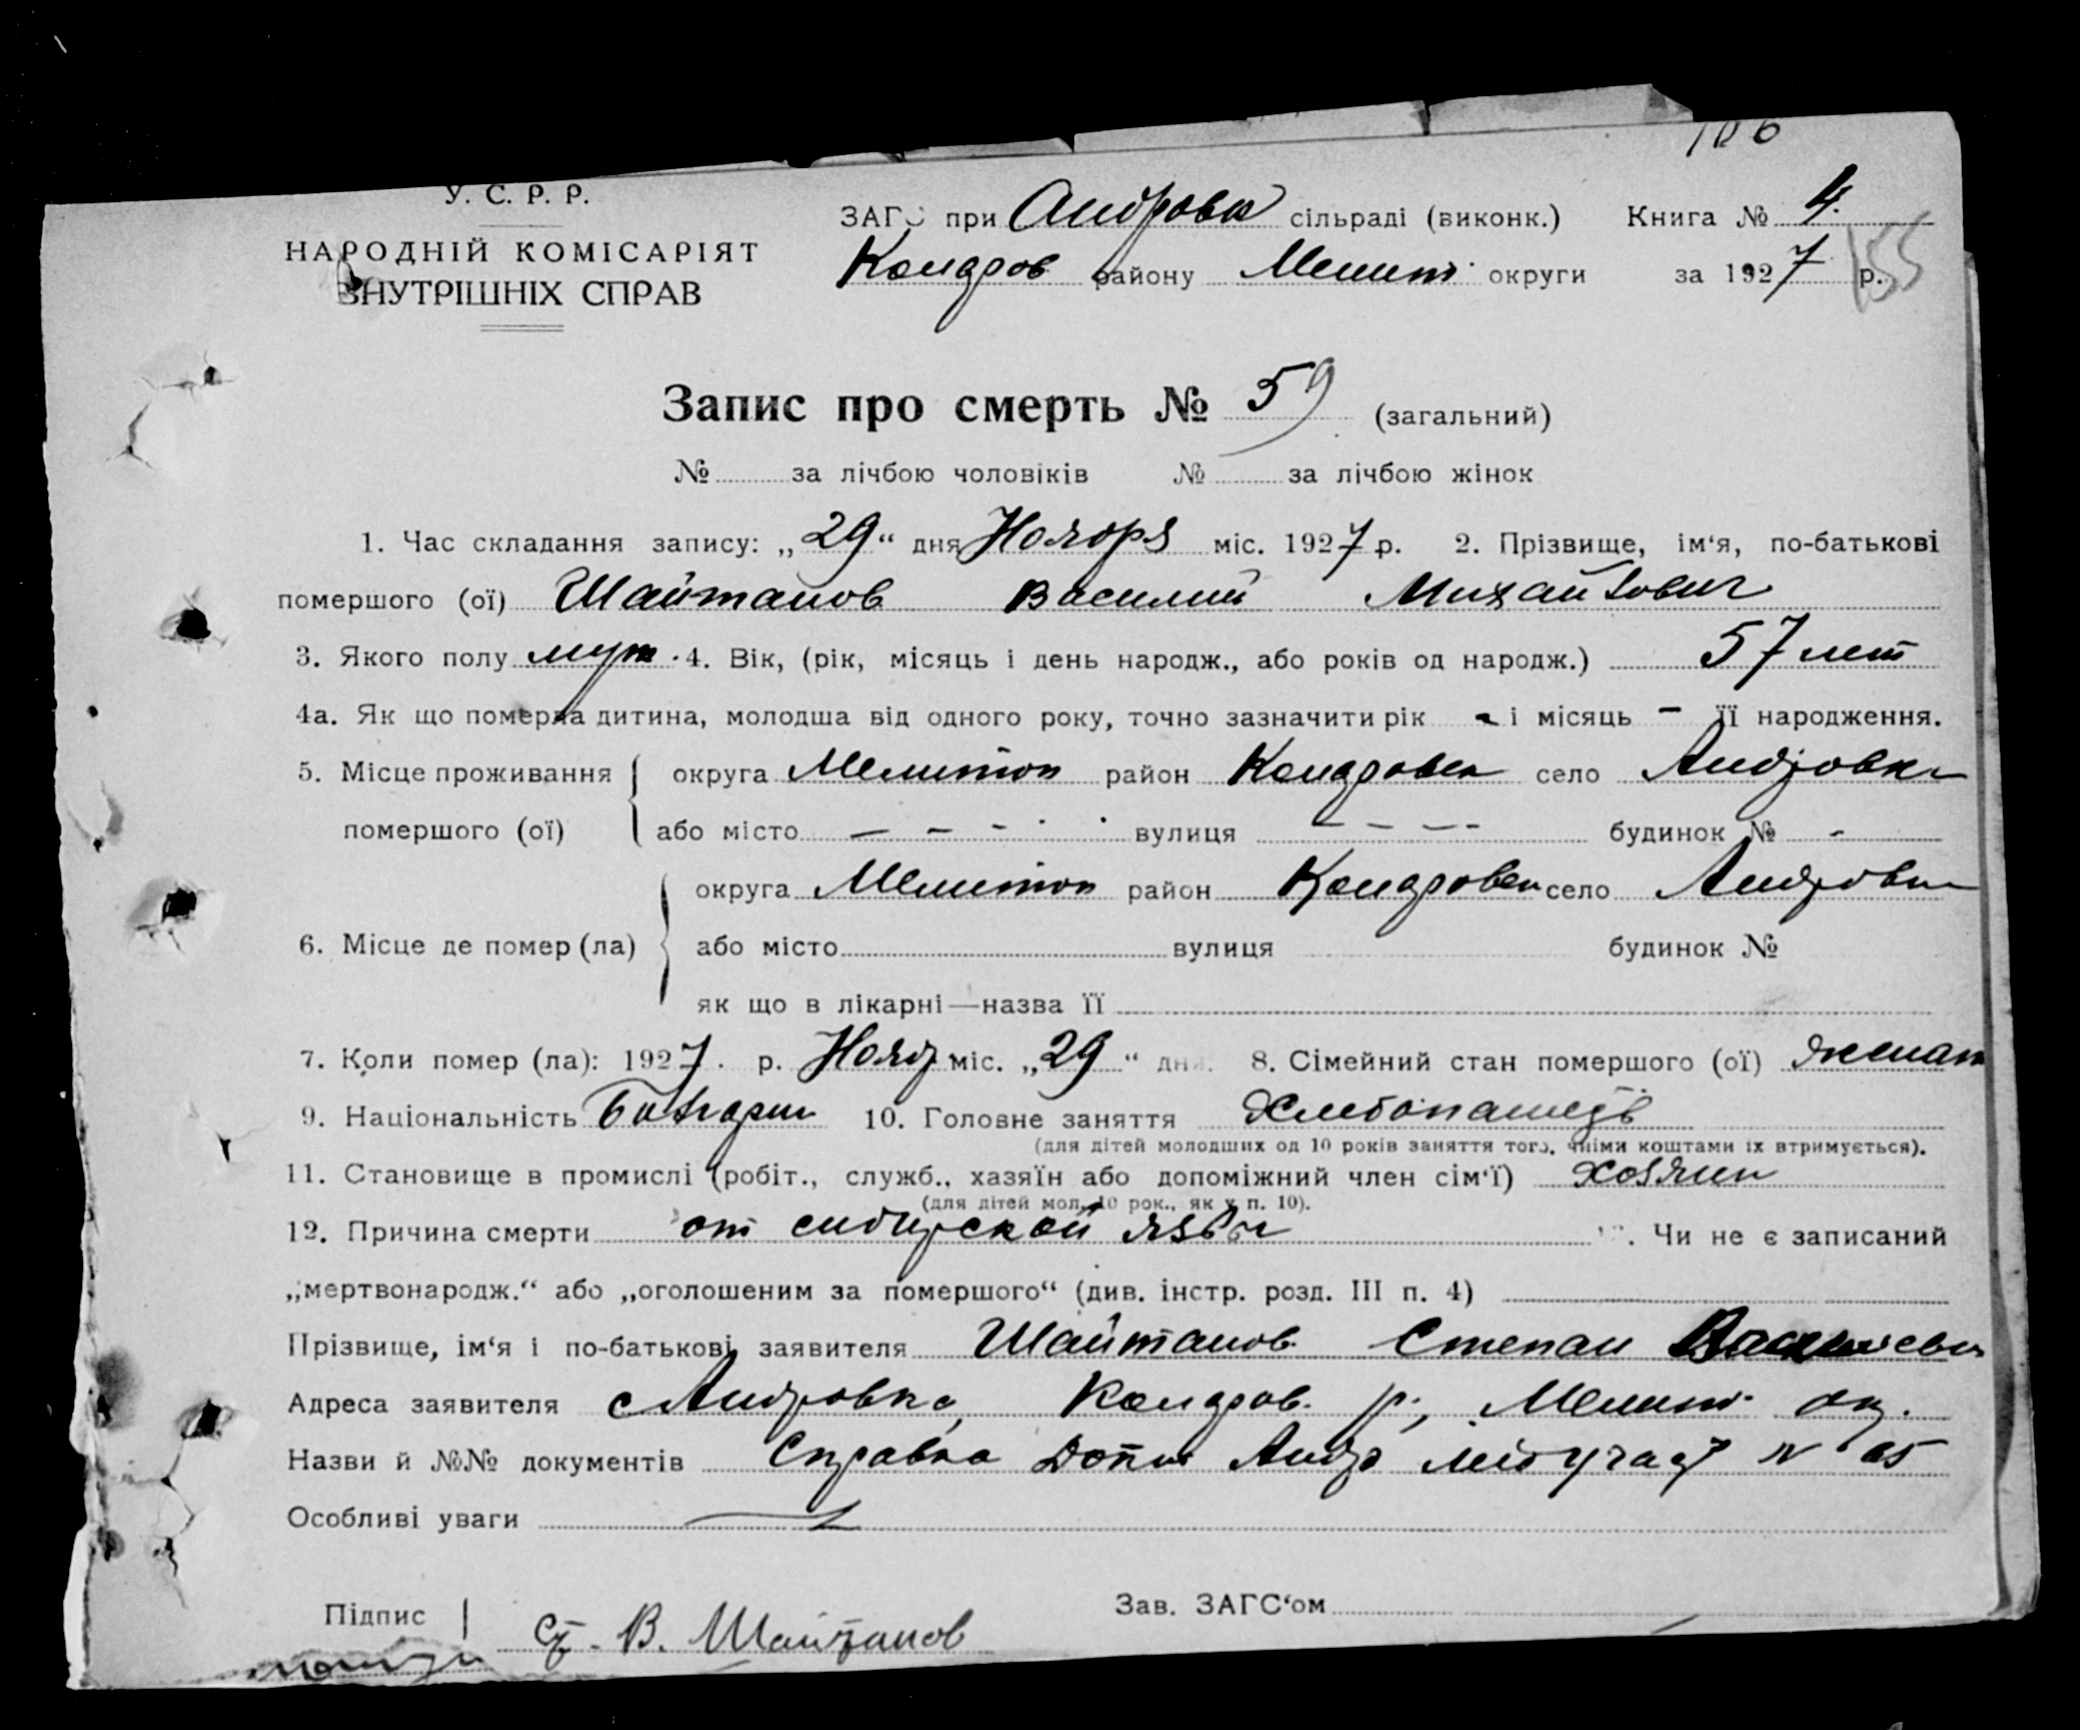 106
У. С. Р. Р.
НАРОДНІЙ КОМІСАРІЯТ
ВНУТРІШНІХ СПРАВ
ЗАГС при Андровк сільраді (виконк.) Книга № 4.
Колдров району Мелит. округи за 1927 р. 155
Запис про смерть № 59 (загальний)
№ за лічбою чоловіків № за лічбою жінок
1. Час складання запису: „29“ дня Ноября міс. 1927 р. 2. Прізвище, ім‘я, по-батькові
помершого (ої) Шайтанов Василий Михайлович
3. Якого полу муж. 4. Вік, (рік, місяць і день народж., або років од народж.) 57 лет
4а. Як що померла дитина, молодша від одного року, точно зазначити рік - і місяць - її народження.
5. Місце проживання округа Мелитоп район Колдровск село Андровка
помершого (ої) або місто - - - вулиця - - - - будинок № -
округа Мелитоп район Колдровск село Андровка
6. Місце де помер (ла) або місто вулиця будинок №
як що в лікарні—назва її
7. Коли помер (ла): 1927. р. Нояб міс. „29“ дня. 8. Сімейний стан помершого (ої) женат
9. Національність Болгарин 10. Головне заняття Хлебопашец
(для дітей молодших од 10 років заняття того, чиїми коштами їх втримується).
11. Становище в промислі (робіт., служб., хазяїн або допоміжний член сім‘ї) хозяин
(для дітей мол. 10 рок., як у п. 10).
12. Причина смерти от сибирской язвы 13. Чи не є записаний
„мертвонародж.“ або „оголошеним за помершого“ (див. інстр. розд. III п. 4)
Прізвище, ім‘я і по-батькові заявителя Шайтанов Степан Васильевич
Адреса заявителя с Андровка Колдров. р., Мелит. ок.
Назви й №№ документів Справка Андр №
Особливі уваги
Підпис Ст. В. Шайтанов
Зав. ЗАГС‘ом